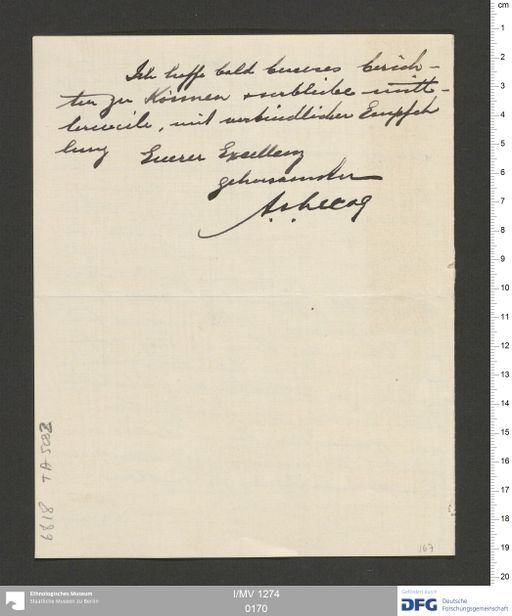 Ich hoffe bald besseres berich-
ten zu können & verbleibe mitt-
lerweile, mit verbindlicher Empfeh
lung
Euerer Excellenz
gehorsamster
TA 5082
6618
167
cm
1
2
3
4
5
6
7
8
9
10
11
12
13
14
15
16
17
18
19
20
Ethnologisches Museum
Staatliche Museen zu Berlin
I/MV 1274
0170
Gefördert durch
DFG Deutsche
Forschungsgemeinschaft